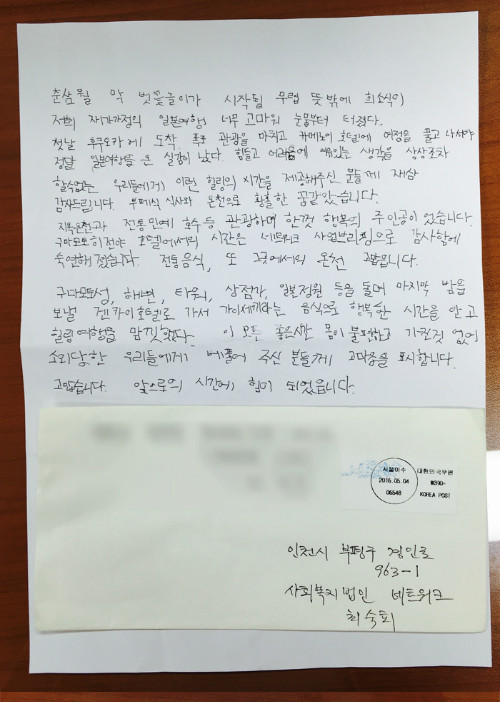 춘삼월 막 벗꽃놀이가 시작될 무렵 뜻밖에 희소식이
저희 자가가정의 일본여행! 너무 고마워 눈물부터 터졌다.
첫날 후쿠오카에 도착 폭포 관광을 마치고 카메노이호텔에 여정을 풀고 나서야
정말 일본여행을 온 실감이 났다. 힘들고 어려움에 생각을 상상조차
할수없는 우리들에게 이런 힐링의 시간을 제공해주신 분들께 재삼
감사드립니다. 부페식 식사와 온천으로 황홀한 꿈같았습니다.
지옥온천과 전통민예 호수등 관광하며 한껏 행복의 주인공이 었습니다.
구마모토히젠야 호텔에서의 시간은 네트워크 사업브리핑으로 감사함에
숙연해졌습니다. 전통음식, 또 그곳에서의 온천 고맙습니다.
구마모토성, 해변, 타워, 상점가, 일본정원 등을 돌며 마지막 밤을
보낼 겐카이호텔로 가서 가이세끼라는 음식으로 행복한 시간을 안고
힐링여행을 맘껏했다. 이 모든 몸이 불편하고 가진것 없어
소외당한 우리들에게 베풀어 주신 분들께 고마움을 표시합니다.
고맙습니다. 앞으로의 시간에 힘이 되었읍니다.
서울이수
2016.05.04
06548
대한민국우편
₩390-
KOREA POST
인천시 부평구 경인로
963-1
사회복지법인 네트워크
최숙희